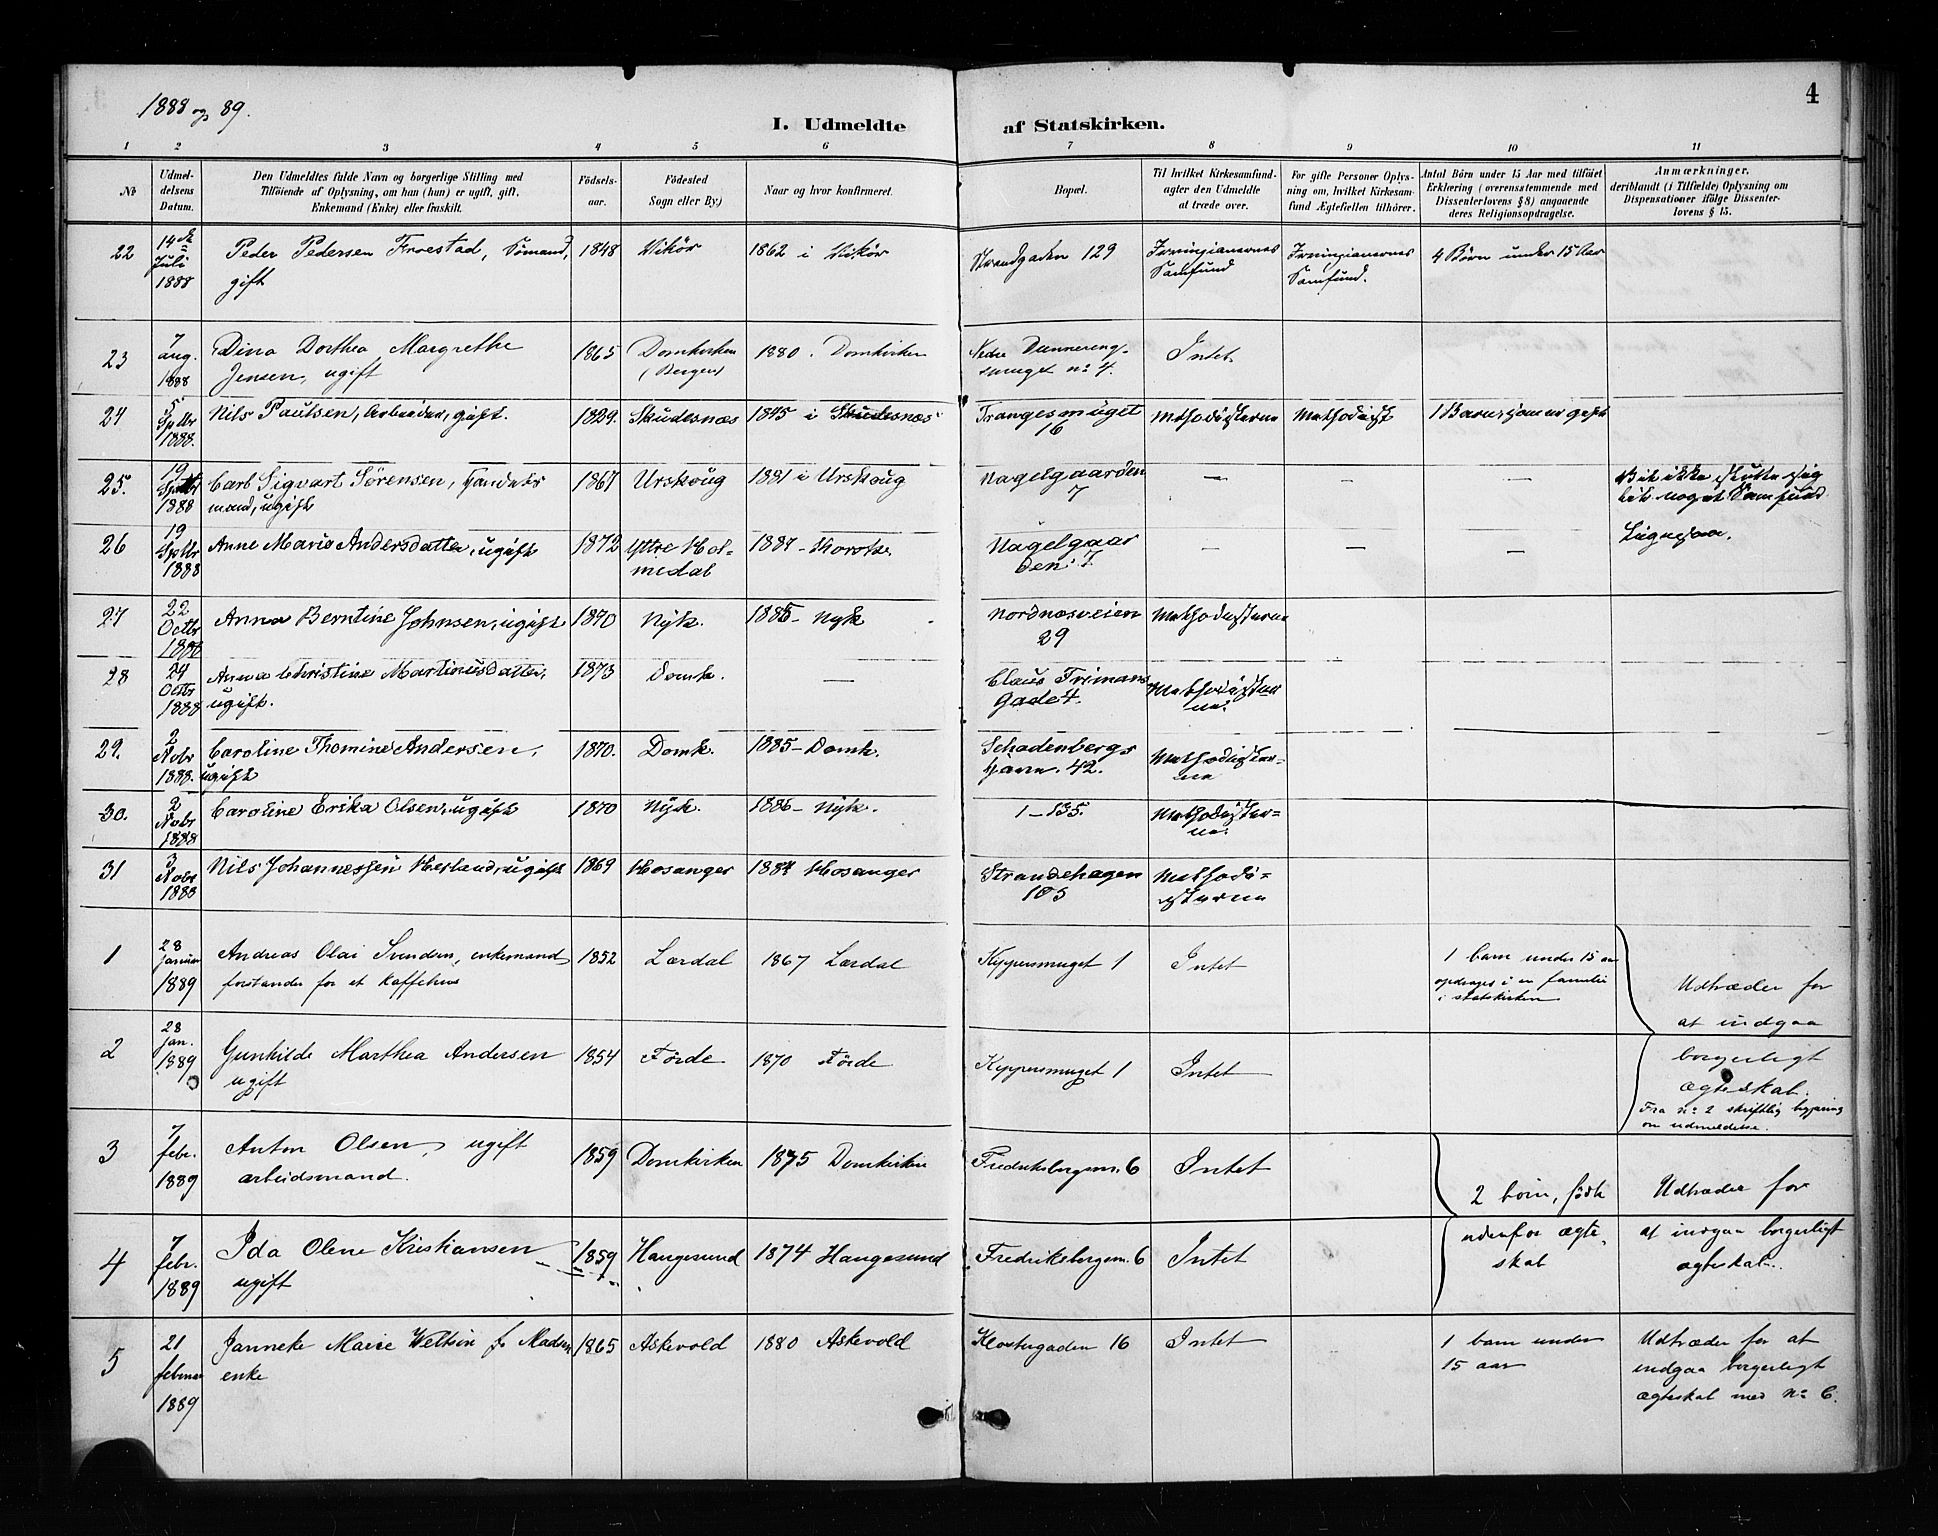 1888 og 89.
4
I. Udmeldte af Statskirken.
1 2 3 4 5 6 7 8 9 10 11
No
Udmel-
delsens
Datum.
Den Udmeldtes fulde Navn og borgerlige Stilling med
Tilföiende af Oplysning, om han (hun) er ugift, gift,
Enkemand (Enke) eller fraskilt.
Födsels-
aar.
Födested
Sogn eller By.)
Naar og hvor konfirmeret.
Bopæl.
Til hvilket Kirkesamfund-
agter den Udmeldte
at træde over.
For gifte Personer Oplys-
ning om, hvilket Kirkesam-
fund Ægtefællen tilhörer.
Antal Börn under 15 Aar med tilföiet
Erklæring (overensstemmende med
Dissenterlovens § 8) angaaende
deres Religionsopdragelse.
Anmærkninger,
deriblandt (i Tilfælde) Oplysning om
Dispensationer ifölge Dissenter-
lovens § 15.
22 14de Juli 1888 Peder Pedersen Froestad, Sömand, 1848 Vikör 1862 i Vikör Strandgaden 129 Irvingianernes Irvingianernes 4 Börn under 15 Aar
gift Samfund Samfund.
23 7 aug. 1888 Dina Dorthea Margrethe 1865 Domkirken 1880. Domkirken Nedre Dunnereng- Intet.
Jensen, ugift (Bergen) smuget no 4.
24 5 Septbr 1888. Nils Paulsen, Arbeider, gift. 1829. Skudesnæs 1845 i Skudesnæs Trangesmuget Methodisterne Methodist 1 Barn, som er gift
16
25. 19 Septbr 1888 Carl Sigvart Sörensen, Handels 1867 Urskoug 1881 i Urskoug Nagelgaarden — — — Vil ikke slutte sig
mand, ugift 7 til noget Samfund
26 19 Septbr 1888 Anne Marie Andersdatter, ugift 1872 Yttre Hol- 1887 - Korsk. Nagelgaar — — — Ligesaa.
medal den 7
27 22 Octbr 1888 Anna Berntine Johnsen, ugift 1870 Nyk. 1885 - Nyk Nordnæsveien Methodisterne
29
28 24 Octbr 1888 Anna Christine Martinusdatter, 1873 Domk. — Claus Frimans Methodister
ugift. Gade 4. ne.
29. 2 Nobr 1888. Caroline Thomine Andersen, 1870. Domk. 1885 - Domk. Schadenbergs Methodister=
ugift 42. ne
30. 2 Nobr 1888 Caroline Erika Olsen, ugift 1870 Nyk. 1886 - Nyk. 1 - 135. Methodister=
ne.
31 3 Nobr 1888 Nils Johannessen Herland, ugift 1869 Hosanger 1884 Hosanger Strandehagen Methodi=
105 sterne
1 28 Januar 1889 Andreas Olai Svendsen, enkemand 1852 Lærdal 1867 Lærdal Kippersmuget 1 Intet 1 barn under 15 aar
forstander for et kaffehus opdrages i en familie
i statskirken
Udtræder for
at indgaa
2 28 Jan. 1889 Gunhilde Marthea Andersen 1854 Förde 1870 Förde Kippersmuget 1 Intet borgerligt
ugift ægteskab.
Fra no 2 skriftlig begjæring
om udmeldelse.
3 7 febr. 1889 Anton Olsen, ugift 1859 Domkirken 1875 Domkirken Fredriksbergsm. 6 Intet
arbeidsmand. 2 börn, födt Udtræder for
4 7 febr. 1889 Ida Olene Kristiansen 1859 Haugesund 1874 Haugesund Fredriksbergsm. 6 Intet udenfor ægte- at indgaa borgerligt
ugift skab ægteskab.
5 21 februar 1889 Janneke Marie Weltsin f. Madsen 1865 Askevold 1880 Askevold Klostergaden 16 Intet 1 barn under Udtræder for at
enke 15 aar indgaa borgerligt
ægteskab med No 6.